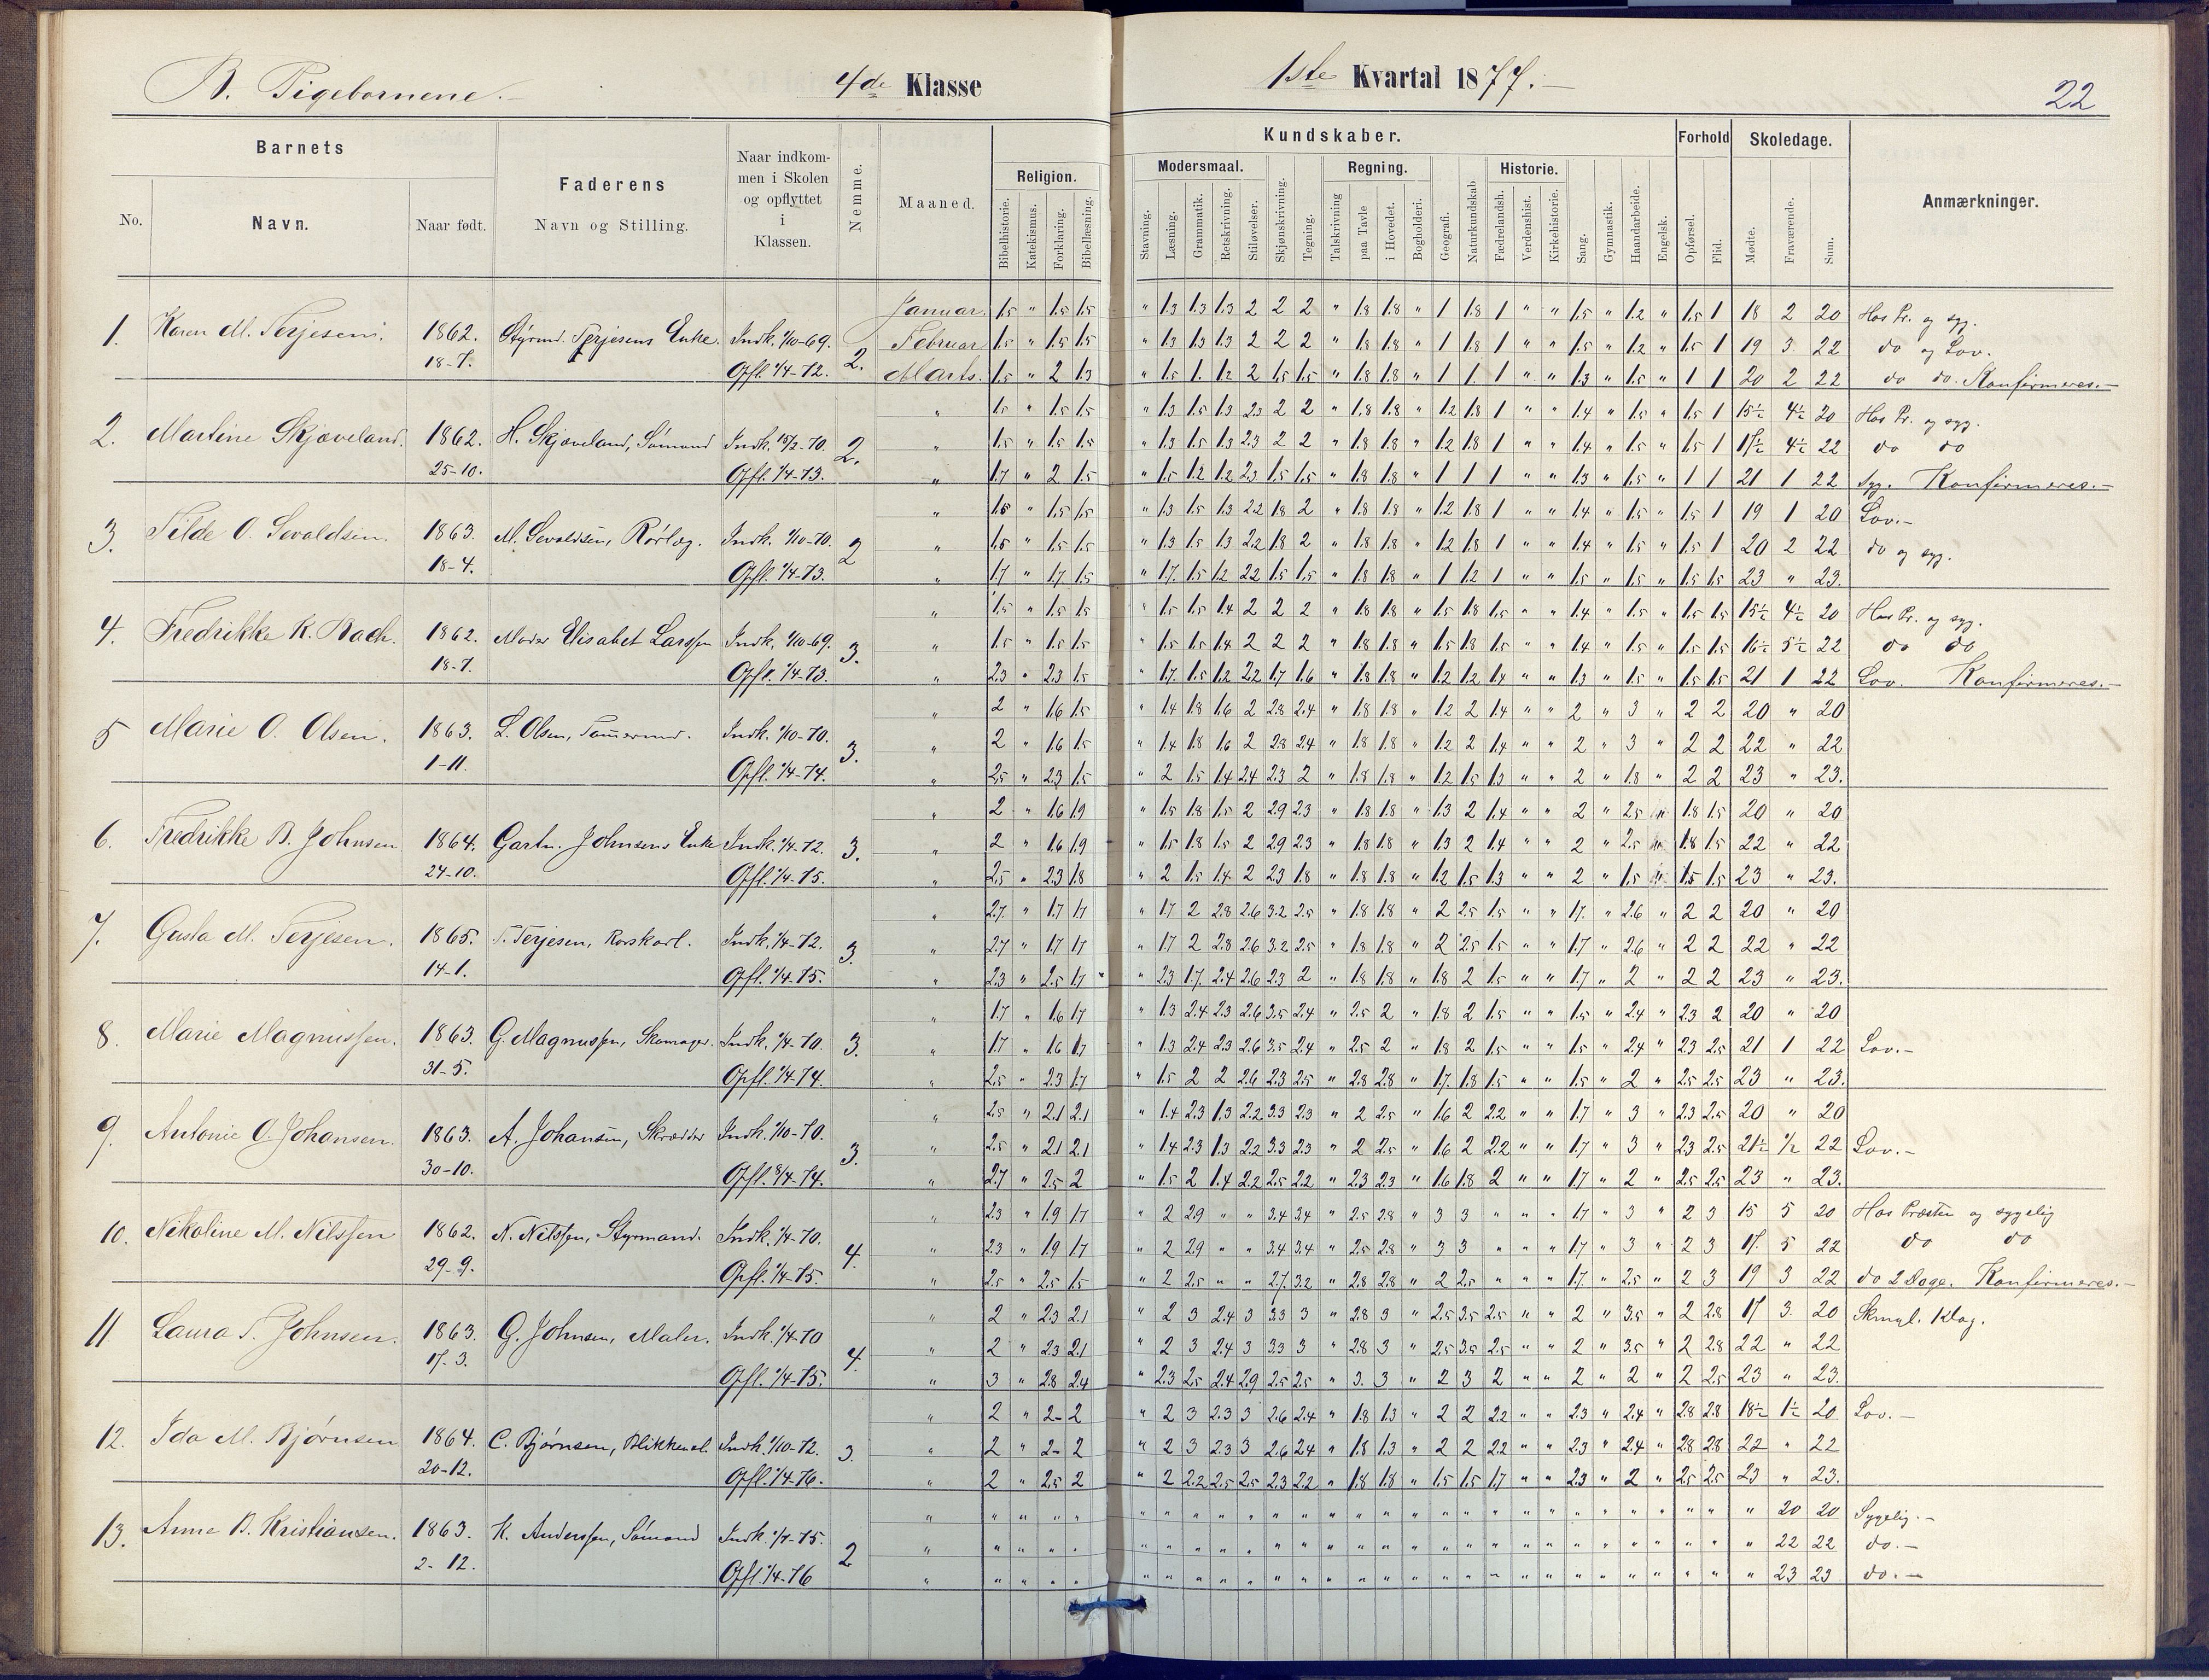 B. Pigebørnene.
4de Klasse
1ste Kvartal 1877.
22
Barnets
Faderens
Navn og Stilling.
Naar indkom-
men i Skolen
og opflyttet
i
Klassen.
Nemme.
Maaned.
Religion.
Kundskaber.
Modersmaal.
Regning.
Historie.
Forhold
Skoledage.
Anmærkninger.
No.
Navn.
Naar født.
Bibelhistorie.
Katekismus.
Forklaring.
Bibellæsning.
Stavning.
Læsning.
Grammatik.
Retskrivning.
Stiløvelser.
Skjønskrivning.
Tegning.
Talskrivning
paa Tavle
i Hovedet.
Bogholderi.
Geografi.
Naturkundskab
Fædrelandsh.
Verdenshist.
Kirkehistorie.
Sang.
Gymnastik.
Haandarbeide.
Engelsk.
Opførsel.
Flid.
Mødte.
Fraværende.
Sum.
Januar. 1.5 " 1.5 1.5 " 1.3 1.3 1.3 2 2 2 " 1.8 1.8 " 1 1.8 1 " " 1.5 " 1.2 " 1.5 1 18 2 20 Hos Pr. og syg.
1. Karen M. Terjesen. 1862. Styrmd. Terjesens Enke. Indk. 1/10-69. 2. Februar 1.5 " 1.5 1.5 " 1.3 1.3 1.3 2 2 2 " 1.8 1.8 " 1 1.8 1 " " 1.5 " 1.2 " 1.5 1 19 3 22 do og Lov.
18-7. Opfl. 1/4-72. Marts. 1.5 " 2 1.3 " 1.5 1. 1.2 2 1.5 1.5 " 1.8 1.8 " 1 1. 1 " " 1.3 " 1.5 " 1 1 20 2 22 do do. Konfirmeres.-
" 1.5 " 1.5 1.5 " 1.3 1.5 1.3 2.3 2 2 " 1.8 1.8 " 1.2 1.8 1 " " 1.4 " 1.5 " 1.5 1 15½ 4½ 20 Hos Pr. og syg.
2. Martine Skjæveland. 1862. H. Skjæveland, Sømand Indk. 15/2-70. 2. " 1.5 " 1.5 1.5 " 1.3 1.5 1.3 2.3 2 2 " 1.8 1.8 " 1.2 1.8 1 " " 1.4 " 1.5 " 1.5 1 17½ 4½ 22 do do
25-10. Opfl. 1/4-73. " 1.7 " 2 1.5 " 1.5 1.2 1.2 2.3 1.5 1.5 " 1.8 1.8 " 1 1 1 " " 1.3 " 1.5 " 1 1 21 1 22 Syg. Konfirmeres.-
" 1.5 " 1.5 1.5 " 1.3 1.5 1.3 2.2 1.8 2 " 1.8 1.8 " 1.2 1.8 1 " " 1.4 " 1.5 " 1.5 1 19 1 20 Lov.-
3. Tilde O. Sevaldsen. 1863. M. Sevaldsen, Rørlæg. Indk. 1/10-70. 2 " 1.5 " 1.5 1.5 " 1.3 1.5 1.3 2.2 1.8 2 " 1.8 1.8 " 1.2 1.8 1 " " 1.4 " 1.5 " 1.5 1 20 2 22 do og syg.
18-4. Opfl. 1/4-73. " 1.7 " 1.7 1.5 " 1.7 1.5 1.2 2.2 1.5 1.5 " 1.8 1.8 " 1 1.2 1 " " 1.5 " 1.5 " 1.5 1.5 23 " 23.
" 1.5 " 1.5 1.5 " 1.5 1.5 1.4 2 2 2 " 1.8 1.8 " 1.5 1.8 1.5 " " 1.4 " 1.5 " 1.5 1.5 15½ 4½ 20 Hos Pr. og syg.
4. Fredrikke K. Bach. 1862. Moder Elisabet Larssen Indk. 1/10-69. 3. " 1.5 " 1.5 1.5 " 1.5 1.5 1.4 2 2 2 " 1.8 1.8 " 1.5 1.8 1.5 " " 1.4 " 1.5 " 1.5 1.5 16½ 5½ 22 do do
18-7. Opfl. 1/4-73. " 2.3 " 2.3 1.5 " 1.7 1.5 1.2 2.2 1.7 1.6 " 1.8 1.8 " 1.2 1.2 1.4 " " 1.3 " 1.5 " 1.5 1.5 21 1 22 Lov. Konfirmeres.-
" 2 " 1.6 1.5 " 1.4 1.8 1.6 2 2.8 2.4 " 1.8 1.8 " 1.2 2 1.4 " " 2 " 3 " 2 2 20 " 20
5 Marie O. Olsen. 1863. L. Olsen, Tømermd. Indk. 1/10-70. 3. " 2 " 1.6 1.5 " 1.4 1.8 1.6 2 2.8 2.4 " 1.8 1.8 " 1.2 2 1.4 " " 2 " 3 " 2 2 22 " 22
1-11. Opfl. 1/4-74. " 2.5 " 2.3 1.5 " 2 1.5 1.4 2.4 2.3 2 " 1.8 1.8 " 1.2 1.5 1.3 " " 2 " 1.8 " 2 2 23 " 23.
" 2 " 1.6 1.9 " 1.5 1.8 1.5 2 2.9 2.3 " 1.8 1.8 " 1.3 2 1.4 " " 2 " 2.5 1.8 1.5 20 " 20
6. Fredrikke B. Johnsen 1864. Gartn. Johnsens Enke Indk. 1/4-72. 3. " 2 " 1.6 1.9 " 1.5 1.8 1.5 2 2.9 2.3 " 1.8 1.8 " 1.3 2 1.4 " " 2 " 2.5 1.8 1.5 22 " 22
24-10. Opfl. 1/4-75. " 2.5 " 2.3 1.8 " 2 1.5 1.4 2 2.3 1.8 " 1.8 1.8 " 1.2 1.5 1.3 " " 2 " 1.5 1.5 1.5 23 " 23.
" 2.7 " 1.7 1.7 " 1.7 2 2.8 2.6 3.2 2.5 " 1.8 1.8 " 2 2.5 1.5 " " 1.7 " 2.6 " 2 2 20 " 20
7. Gusta M. Terjesen. 1865. T. Terjesen, Rorskarl. Indk. 1/4-72. 3. " 2.7 " 1.7 1.7 " 1.7 2 2.8 2.6 3.2 2.5 " 1.8 1.8 " 2 2.5 1.5 " " 1.7 " 2.6 " 2 2 22 " 22
14-1. Opfl. 1/4-75. " 2.3 " 2.5 1.7 " 2.3 1.7 2.4 2.6 2.3 2 " 1.8 1.8 " 1.8 2 1.5 " " 1.7 " 2 " 2 2 23 " 23.
" 1.7 " 1.6 1.7 " 1.3 2.4 2.3 2.6 3.5 2.4 " 2.5 2 " 1.8 2 1.5 " " 1.5 " 2.4 " 2.3 2 20 " 20
8. Marie Magnussen. 1863. G. Magnussen, Skomager. Indk. 1/4-70. 3. " 1.7 " 1.6 1.7 " 1.3 2.4 2.3 2.6 3.5 2.4 " 2.5 2 " 1.8 2 1.5 " " 1.5 " 2.4 " 2.3 2.5 21 1 22 Lov.-
31-5. Opfl. 1/4-74. " 2.5 " 2.3 1.7 " 1.5 2 2 2.6 2.3 2.5 " 2.8 2.8 " 1.7 1.8 1.5 " " 1.5 " 2 " 2.5 2.5 23 " 23.
" 2.5 " 2.1 2.1 " 1.4 2.3 1.3 2.2 3.3 2.3 " 2 2.5 " 1.6 2 2.2 " " 1.7 " 3 " 2.3 2.5 20 " 20
9. Antonie O. Johansen. 1863. A. Johansen, Skrædder Indk. 1/10-70. 3. " 2.5 " 2.1 2.1 " 1.4 2.3 1.3 2.2 3.3 2.3 " 2 2.5 " 1.6 2 2.2 " " 1.7 " 3 " 2.3 2.5 21½ ½ 22 Lov.-
30-10. Opfl. 8/4-74. " 2.7 " 2.5 2 " 1.5 2 1.4 2.2 2.5 2.2 " 2.3 2.3 " 1.6 1.8 2 " " 1.7 " 2 " 2.5 2.5 23 " 23.
" 2.3 " 1.9 1.7 " 2 2.9 " " 3.4 3.4 " 2.5 2.8 " 3 3 " " " 1.7 " 3 " 2 3 15 5 20 Hos Præsten og sygelig
10. Nikoline M. Nilssen 1862. N. Nilssen, Styrmand. Indk. 1/4-70. 4. " 2.3 " 1.9 1.7 " 2 2.9 " " 3.4 3.4 " 2.5 2.8 " 3 3 " " " 1.7 " 3 " 2 3 17. 5 22 do do
29-9. Opfl. 1/4-75. " 2.5 " 2.5 1.5 " 2 2.5 " " 2.7 3.2 " 2.8 2.8 " 2 2.5 " " " 1.7 " 2.5 " 2 3 19 3 22 do 2 Dage. Konfirmeres.-
" 2 " 2.3 2.1 " 2 3 2.4 3 3.3 3 " 2.8 3 " 2.5 3.5 2.5 " " 2 " 3.5 " 2 2.8 17 3 20 Skmgl. Klag.
11 Laura T. Johnsen. 1863. G. Johnsen, Maler. Indk. 1/4-70 4. " 2 " 2.3 2.1 " 2 3 2.4 3 3.3 3 " 2.8 3 " 2.5 3.5 2.5 " " 2 " 3.5 " 2 2.8 22 " 22
17-3. Opfl. 1/4-75. " 3 " 2.8 2.4 " 2.3 2.5 2.4 2.9 2.5 2.5 " 3. 3 " 2 3 2 " " 2 " 2 " 2 2.5 23 " 23.
" 2 " 2- 2 " 2 3 2.3 3 2.6 2.4 " 1.8 1.3 " 2 2 2.2 " " 2.3 " 2.4 " 2.8 2.8 18½ 1½ 20 Lov.-
12. Ida M. Bjørnsen 1864. C. Bjørnsen, Blikkensl. Indk. 1/10-72. 3. " 2 " 2- 2 " 2 3 2.3 3 2.6 2.4 " 1.8 1.3 " 2 2 2.2 " " 2.3 " 2.4 " 2.8 2.8 22 " 22
20-12. Opfl. 1/4-76. " 2 " 2.5 2 " 2 2.2 2.5 2.5 2.3 2.2 " 1.8 1.8 " 1.5 1.5 1.7 " " 2.3 " 2 " 2.5 2.5 23 " 23.
" " " " " " " " " " " " " " " " " " " " " " " " " " " " 20 20 Sygelig.-
13. Anne B. Kristiansen. 1863. K. Anderssen, Sømand Indk. 1/7-75. 2 " " " " " " " " " " " " " " " " " " " " " " " " " " " " 22 22 do.-
2-12. Opfl. 1/4-76 " " " " " " " " " " " " " " " " " " " " " " " " " " " " 23 23 do.-